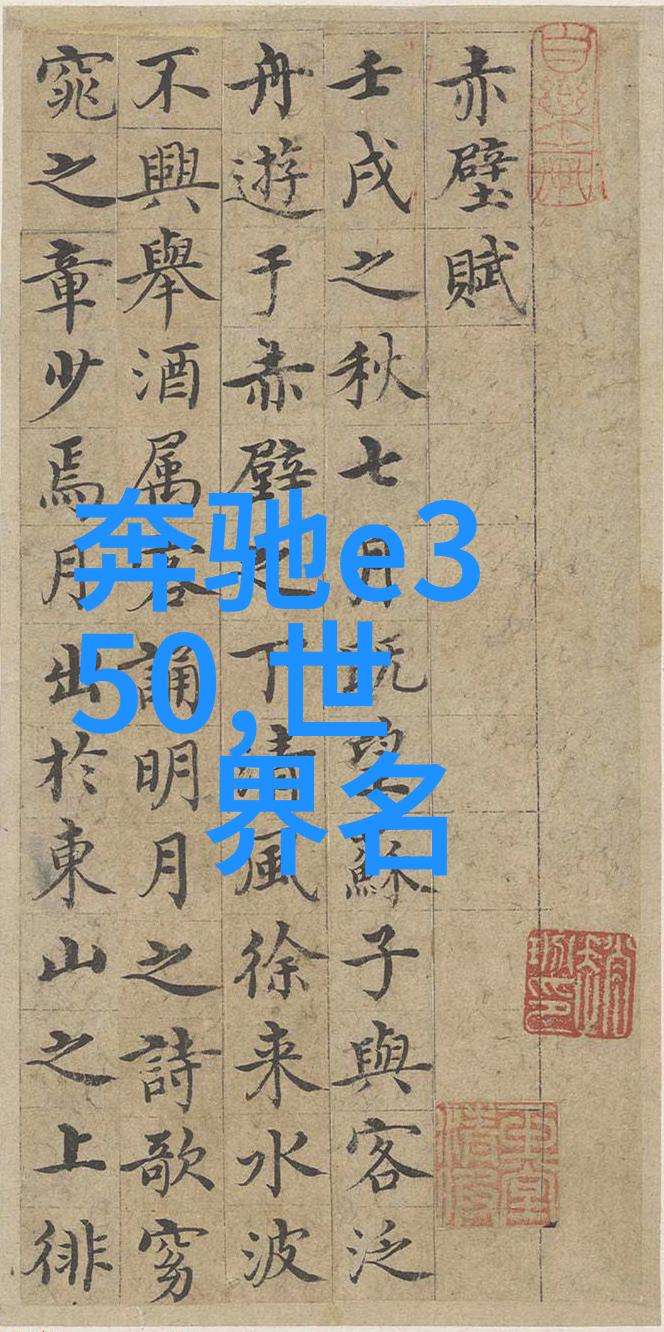 赤壁賦
壬戌之秋七月既望蘇子與客泛
舟遊于赤壁之下清風徐来水波
不興舉酒属客誦明月之詩歌窈
窕之章少焉月出於東山之上徘
奔驰e3
50,世
界名